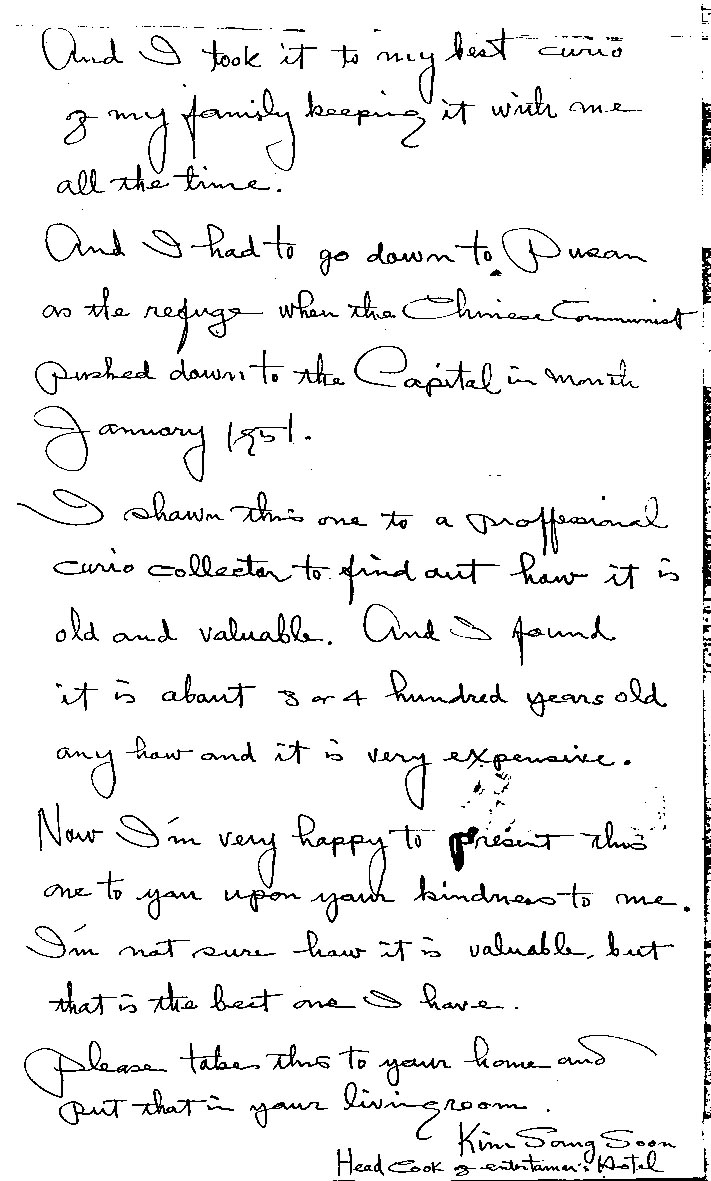 And I took it to my best curio
of my family keeping it with me
all the time.
And I had to go down to Pusan
as the refuge when the Chinese Communist
pushed down to the Capital in month
January 1951.
I shown this one to a proffesional
curio collector to find out how it is
old and valuable. And I found
it is about 3 or 4 hundred years old
any how and it is very expensive.
Now I'm very happy to present this
one to you upon your kindness to me.
I'm not sure how it is valuable, but
that is the best one I have.
Please take this to your home and
put that in your livingroom.
Kim Sang Soon
Head Cook of entertainer's Hotel